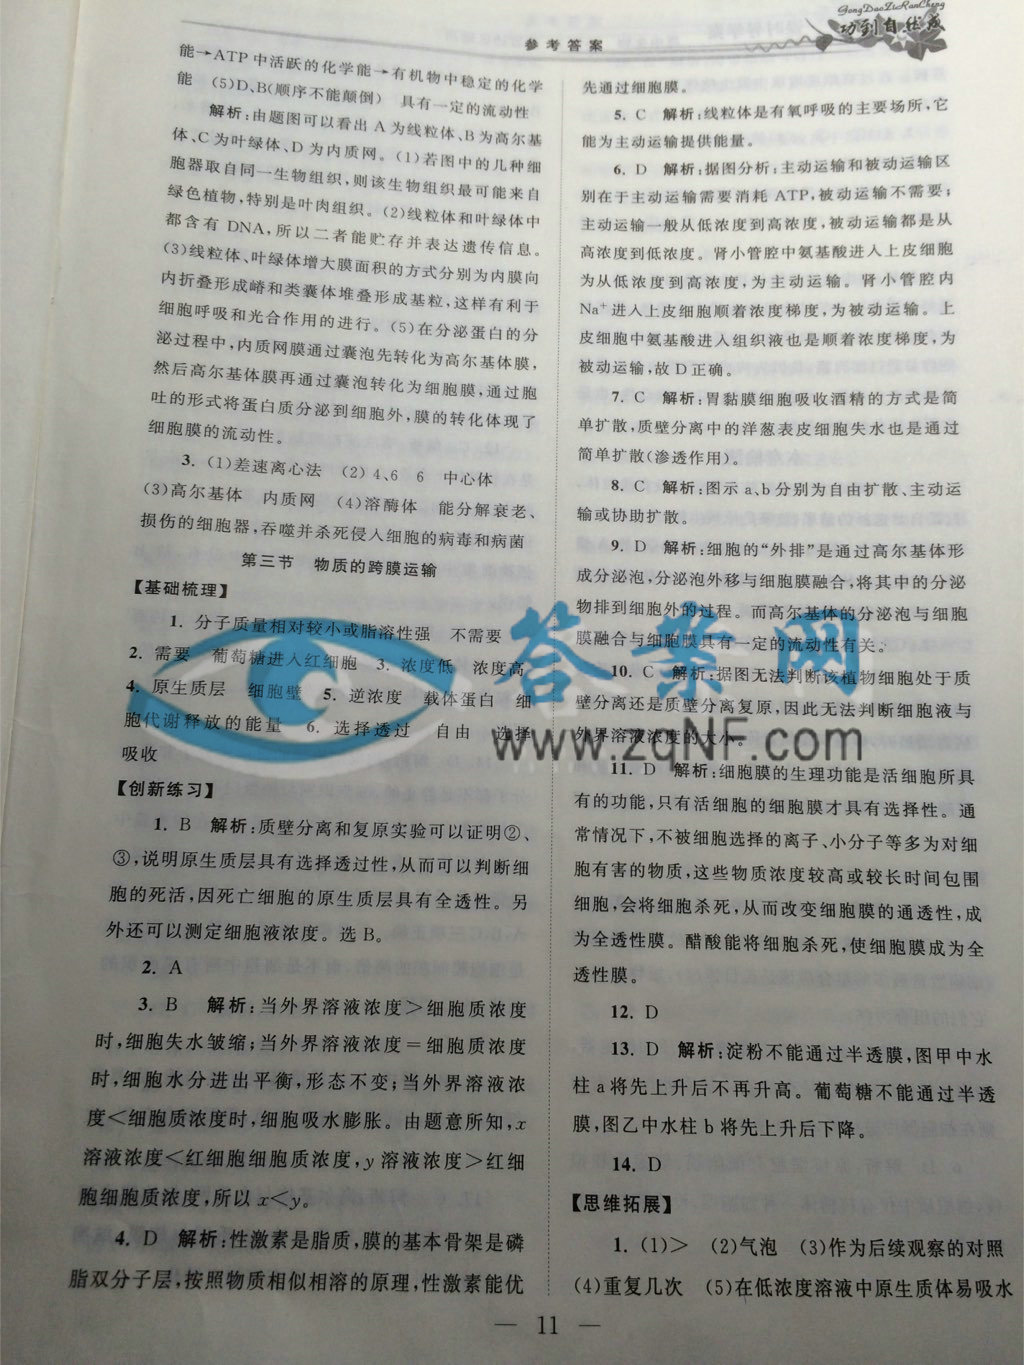 GongDaoZiRanCheng
功到自然成
参考答案
能→ATP中活跃的化学能→有机物中稳定的化学
能　(5)D、B(顺序不能颠倒)　具有一定的流动性
解析:由题图可以看出A为线粒体、B为高尔基
体、C为叶绿体、D为内质网。(1)若图中的几种细
胞器取自同一生物组织,则该生物组织最可能来自
绿色植物,特别是叶肉组织。(2)线粒体和叶绿体中
都含有DNA,所以二者能贮存并表达遗传信息。
(3)线粒体、叶绿体增大膜面积的方式分别为内膜向
内折叠形成嵴和类囊体堆叠形成基粒,这样有利于
细胞呼吸和光合作用的进行。(5)在分泌蛋白的分
泌过程中,内质网膜通过囊泡先转化为高尔基体膜,
然后高尔基体膜再通过囊泡转化为细胞膜,通过胞
吐的形式将蛋白质分泌到细胞外,膜的转化体现了
细胞膜的流动性。
3. (1)差速离心法　(2)4、6　6　中心体
(3)高尔基体　内质网　(4)溶酶体　能分解衰老、
损伤的细胞器,吞噬并杀死侵入细胞的病毒和病菌
第三节　物质的跨膜运输
【基础梳理】
1. 分子质量相对较小或脂溶性强　不需要
2. 需要　葡萄糖进入红细胞　3. 浓度低　浓度高
4. 原生质层　细胞壁　5. 逆浓度　载体蛋白　细
胞代谢释放的能量　6. 选择透过　自由　选择
吸收
【创新练习】
1. B　解析:质壁分离和复原实验可以证明②、
③,说明原生质层具有选择透过性,从而可以判断细
胞的死活,因死亡细胞的原生质层具有全透性。另
外还可以测定细胞液浓度。选B。
2. A
3. B　解析:当外界溶液浓度＞细胞质浓度
时,细胞失水皱缩;当外界溶液浓度＝细胞质浓度
时,细胞水分进出平衡,形态不变;当外界溶液浓
度＜细胞质浓度时,细胞吸水膨胀。由题意所知,x
溶液浓度＜红细胞细胞质浓度,y溶液浓度＞红细
胞细胞质浓度,所以x＜y。
4. D　解析:性激素是脂质,膜的基本骨架是磷
脂双分子层,按照物质相似相溶的原理,性激素能优
先通过细胞膜。
5. C　解析:线粒体是有氧呼吸的主要场所,它
能为主动运输提供能量。
6. D　解析:据图分析:主动运输和被动运输区
别在于主动运输需要消耗ATP,被动运输不需要;
主动运输一般从低浓度到高浓度,被动运输都是从
高浓度到低浓度。肾小管腔中氨基酸进入上皮细胞
为从低浓度到高浓度,为主动运输。肾小管腔内
Na⁺进入上皮细胞顺着浓度梯度,为被动运输。上
皮细胞中氨基酸进入组织液也是顺着浓度梯度,为
被动运输,故D正确。
7. C　解析:胃黏膜细胞吸收酒精的方式是简
单扩散,质壁分离中的洋葱表皮细胞失水也是通过
简单扩散(渗透作用)。
8. C　解析:图示a、b分别为自由扩散、主动运
输或协助扩散。
9. D　解析:细胞的“外排”是通过高尔基体形
成分泌泡,分泌泡外移与细胞膜融合,将其中的分泌
物排到细胞外的过程。而高尔基体的分泌泡与细胞
膜融合与细胞膜具有一定的流动性有关。
10. C　解析:据图无法判断该植物细胞处于质
壁分离还是质壁分离复原,因此无法判断细胞液与
外界溶液浓度的大小。
11. D　解析:细胞膜的生理功能是活细胞所具
有的功能,只有活细胞的细胞膜才具有选择性。通
常情况下,不被细胞选择的离子、小分子等多为对细
胞有害的物质,这些物质浓度较高或较长时间包围
细胞,会将细胞杀死,从而改变细胞膜的通透性,成
为全透性膜。醋酸能将细胞杀死,使细胞膜成为全
透性膜。
12. D
13. D　解析:淀粉不能通过半透膜,图甲中水
柱a将先上升后不再升高。葡萄糖不能通过半透
膜,图乙中水柱b将先上升后下降。
14. D
【思维拓展】
1. (1)＞　(2)气泡　(3)作为后续观察的对照
(4)重复几次　(5)在低浓度溶液中原生质体易吸水
— 11 —
答案网
www.zqNF.com